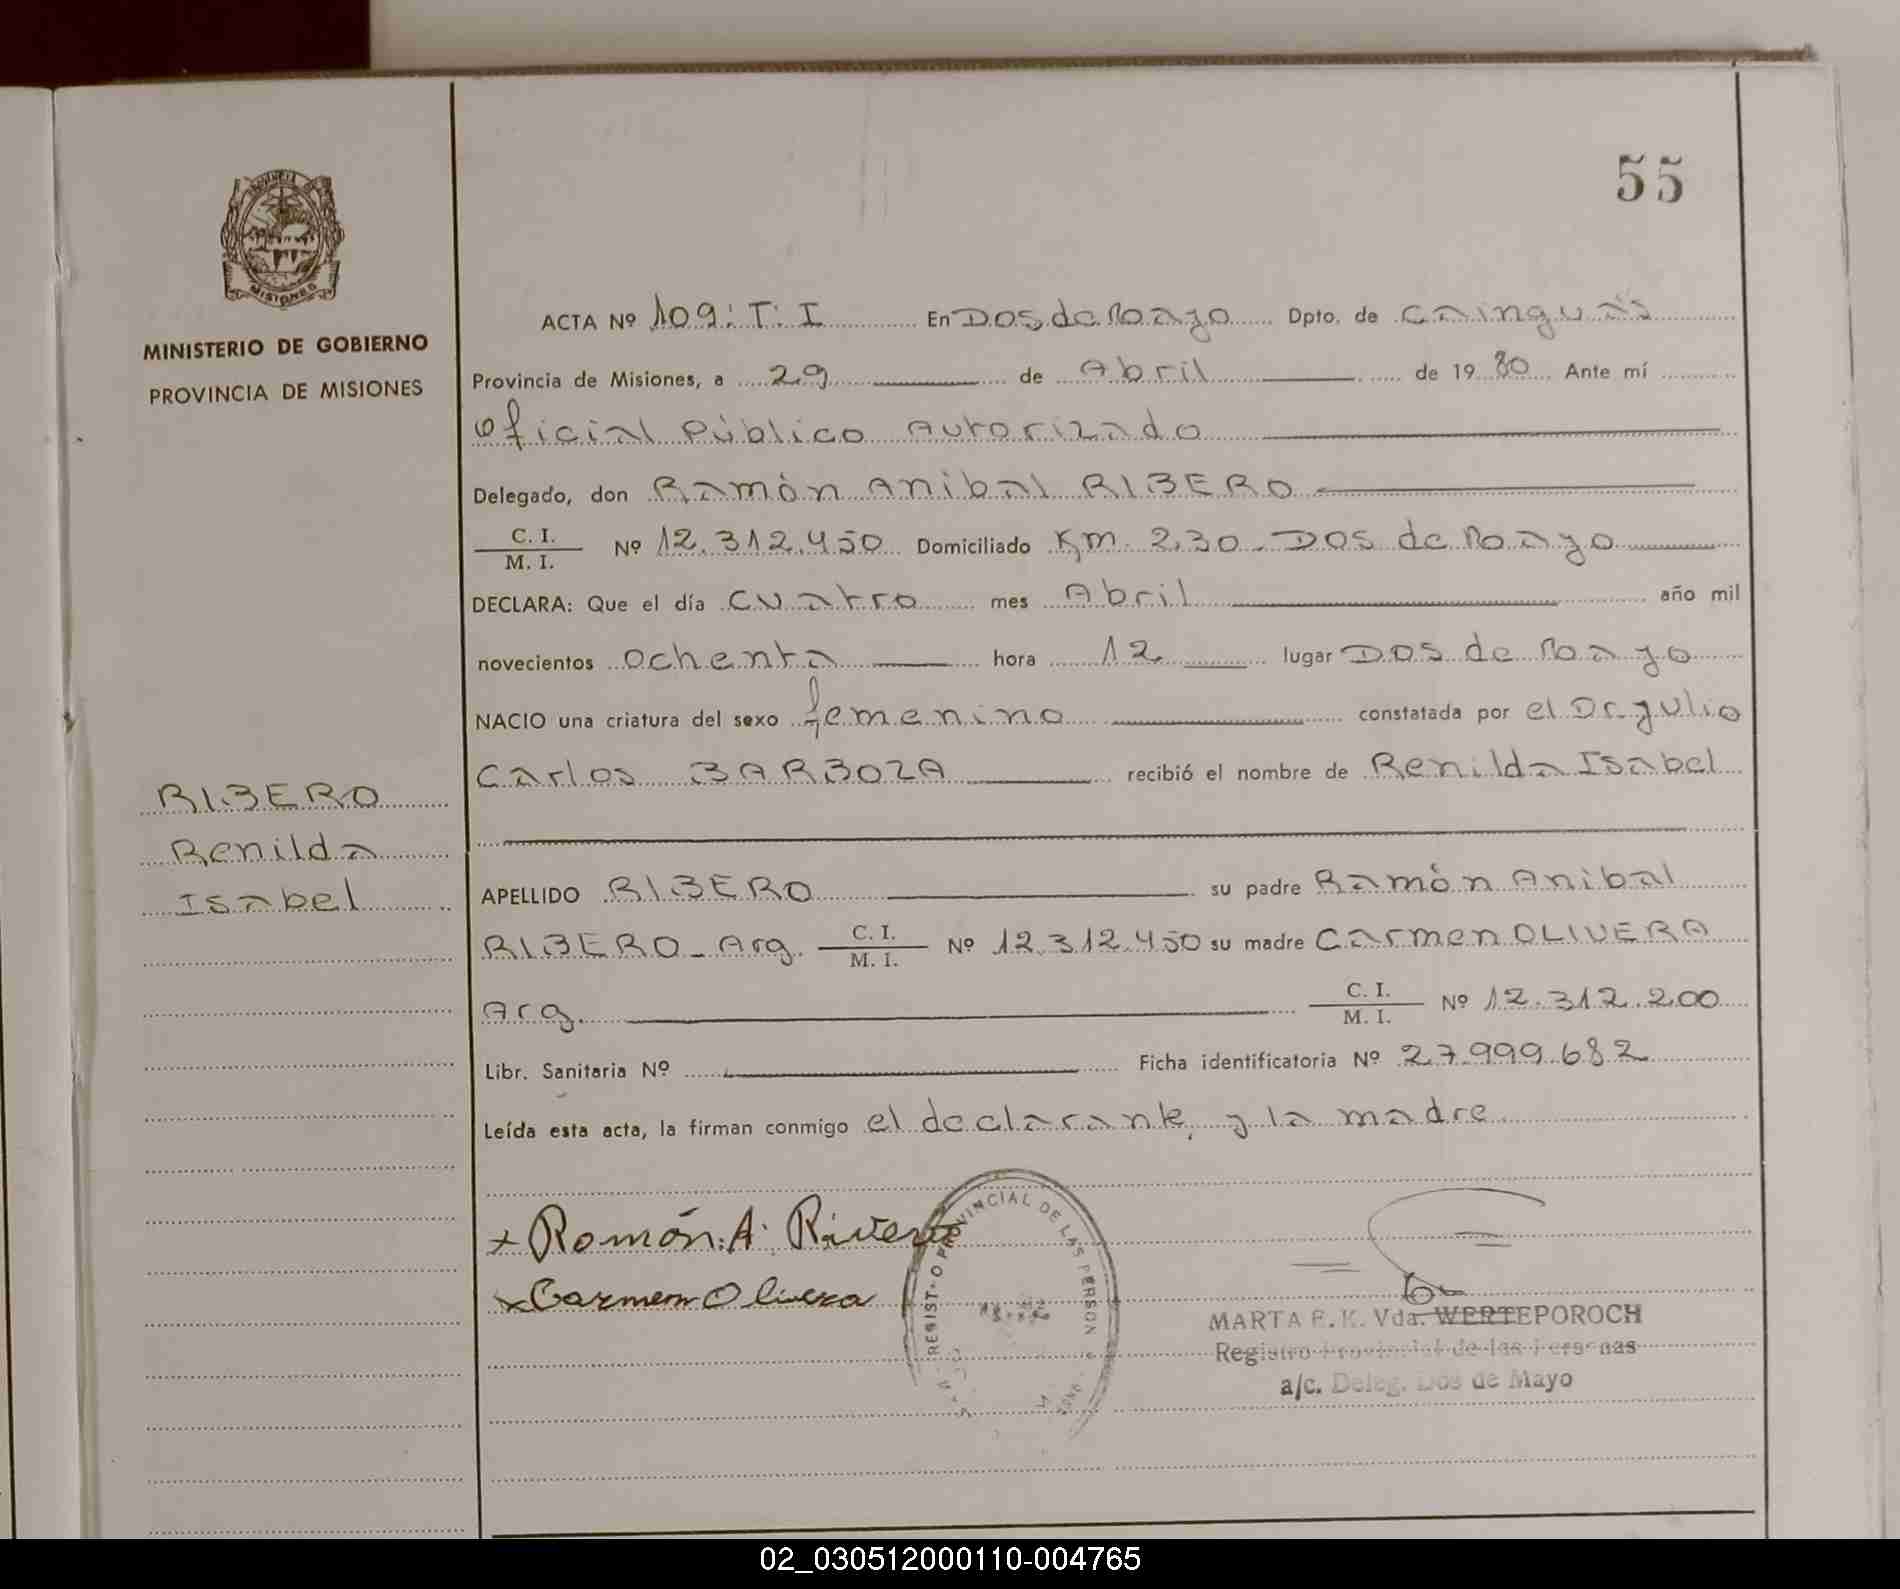 55
MINISTERIO DE GOBIERNO
PROVINCIA DE MISIONES
RIBERO
Renilda
Isabel
ACTA Nº 109: T: I En Dos de Mayo Dpto. de Cainguás
Provincia de Misiones, a 29 de Abril de 1980 Ante mí
Oficial Público Autorizado
Delegado, don Ramón Anibal RIBERO
C. I.
M. I. Nº 12.312.450 Domiciliado Km. 230 - Dos de Mayo
DECLARA: Que el día cuatro mes Abril año mil
novecientos ochenta hora 12 lugar Dos de Mayo
NACIO una criatura del sexo femenino constatada por el Dr. Julio
Carlos BARBOZA recibió el nombre de Renilda Isabel
APELLIDO RIBERO su padre Ramón Anibal
RIBERO - Arg. C. I. M. I. Nº 12.312.450 su madre Carmen OLIVERA
Arg. C. I. M. I. Nº 12.312.200
Libr. Sanitaria Nº Ficha identificatoria Nº 27.999.682
Leída esta acta, la firman conmigo el declarante, y la madre
x Ramón. A. Rivero
x Carmen Olivera
PROVINCIAL DE LAS PERSON
MARTA E. K. Vda. WERTEPOROCH
Registro Provincial de las Personas
a/c. Deleg. Dos de Mayo
02_030512000110-004765